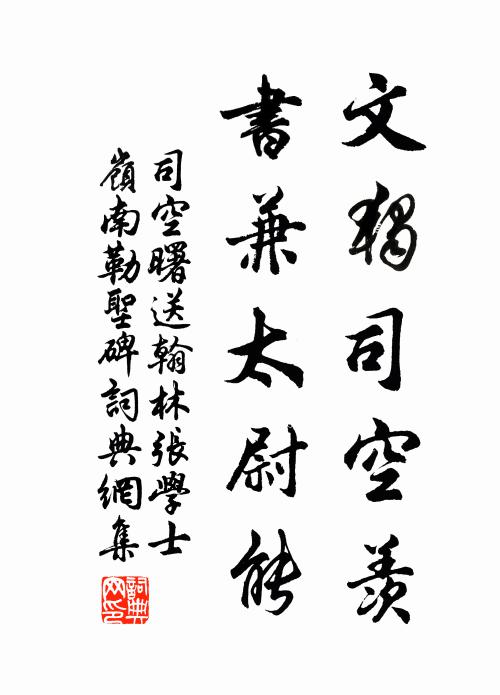 文獨司空羨
書兼太尉能
司空曙送翰林張學士
嶺南勒聖碑詞典網集
詞典網印